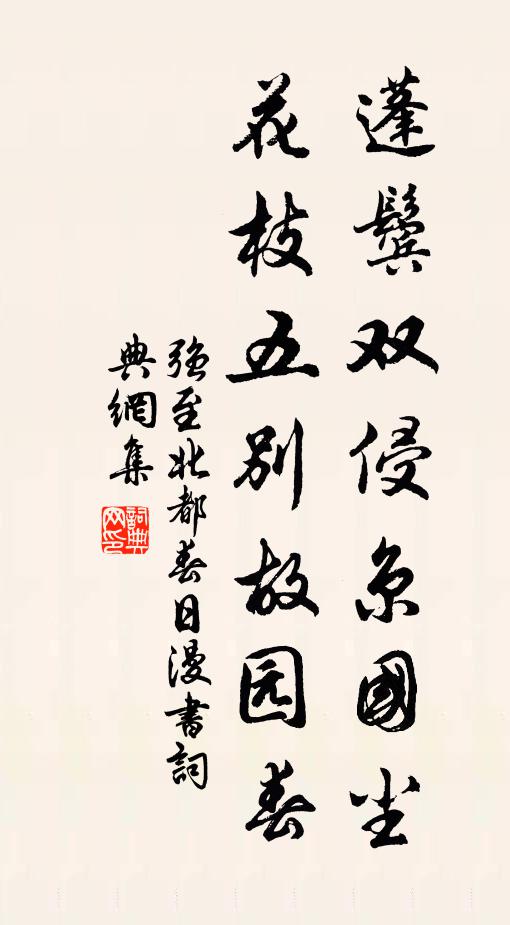 蓬鬓双侵京國尘
花枝五别故园春
强至北都春日漫書詞
典網集
詞典
网印